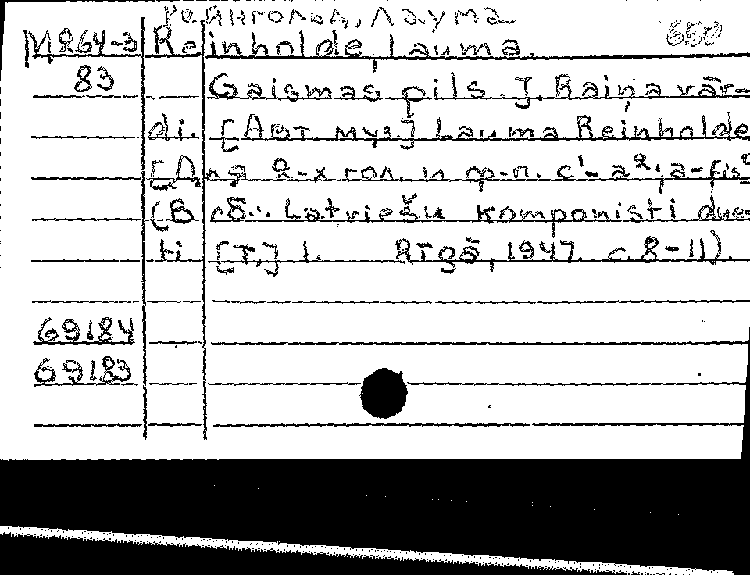 Рейнгольд, Лаума
650
M864-3 Reinholde, Lauma.
83 Gaismas pils. J. Raiņa vār-
di. [Авт. муз.] Lauma Reinholde
[Для 2-х гол. и ф-п. c¹-a²; a-fis²
(В сб.: Latviešu komponisti due-
ti [т.] 1. Rīgā, 1947. с. 8-11).
69184
69183